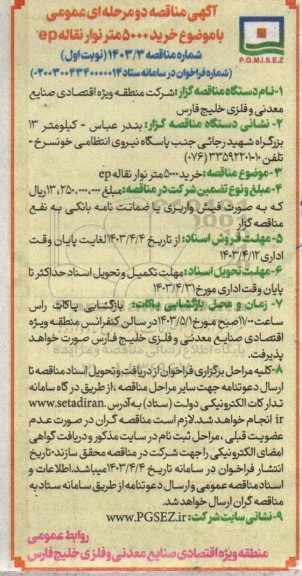 آگهی مناقصه دو مرحله ای عمومی
با موضوع خرید ۵۰۰۰متر نوار نقاله ep
شماره مناقصه ۱۴۰۳/۳ (نوبت اول)
P.G.M.I.S.E.Z
(شماره فراخوان در سامانه ستاد ۰۲۰۰۳۰۰۴۳۴۰۰۰۰۱۴)
۱-نام دستگاه مناقصه گزار: شرکت منطقه ویژه اقتصادی صنایع
معدنی و فلزی خلیج فارس
۲- نشانی دستگاه مناقصه گزار: بندر عباس - کیلومتر ۱۳
بزرگراه شهید رجائی جنب پاسگاه نیروی انتظامی خونسرخ -
تلفن ۱۰-۳۳۵۹۲۲۰۱ (۰۷۶)
۳-موضوع مناقصه: خرید ۵۰۰۰ متر نوار نقاله ep
۴-مبلغ و نوع تضمین شرکت در مناقصه: مبلغ ۱۳,۲۵۰,۰۰۰,۰۰۰ ریال
که به صورت فیش واریزی یا ضمانت نامه بانکی به نفع
مناقصه گزار
۵- مهلت فروش اسناد: از تاریخ ۱۴۰۳/۴/۴ لغایت پایان وقت
اداری ۱۴۰۳/۴/۱۲
۶-مهلت تحویل اسناد: مهلت تکمیل و تحویل اسناد حداکثر تا
پایان وقت اداری مورخ ۱۴۰۳/۴/۳۱
۷- زمان و محل بازگشایی پاکات: بازگشایی پاکات راس
ساعت ۱۱/۰۰ صبح مورخ ۱۴۰۳/۵/۱ در سالن کنفرانس منطقه ویژه
اقتصادی صنایع معدنی و فلزی خلیج فارس صورت خواهد
پذیرفت.
۸-کلیه مراحل برگزاری فراخوان از دریافت و تحویل اسناد مناقصه تا
ارسال دعوتنامه جهت سایر مراحل مناقصه ،از طریق درگاه سامانه
تدارکات الکترونیکی دولت (ستاد) به آدرس www.setadiran.
ir انجام خواهد شد.لازم است مناقصه گران در صورت عدم
عضویت قبلی ،مراحل ثبت نام در سایت مذکور و دریافت گواهی
امضای الکترونیکی را جهت شرکت در مناقصه محقق سازند.تاریخ
انتشار فراخوان در سامانه تاریخ ۱۴۰۳/۴/۴ میباشد.اطلاعات و
اسناد مناقصه عمومی و ارسال دعوتنامه از طریق سامانه ستاد به
مناقصه گران ارسال خواهد شد.
۹-نشانی سایت شرکت: www.PGSEZ.ir
روابط عمومی
منطقه ویژه اقتصادی صنایع معدنی و فلزی خلیج فارس